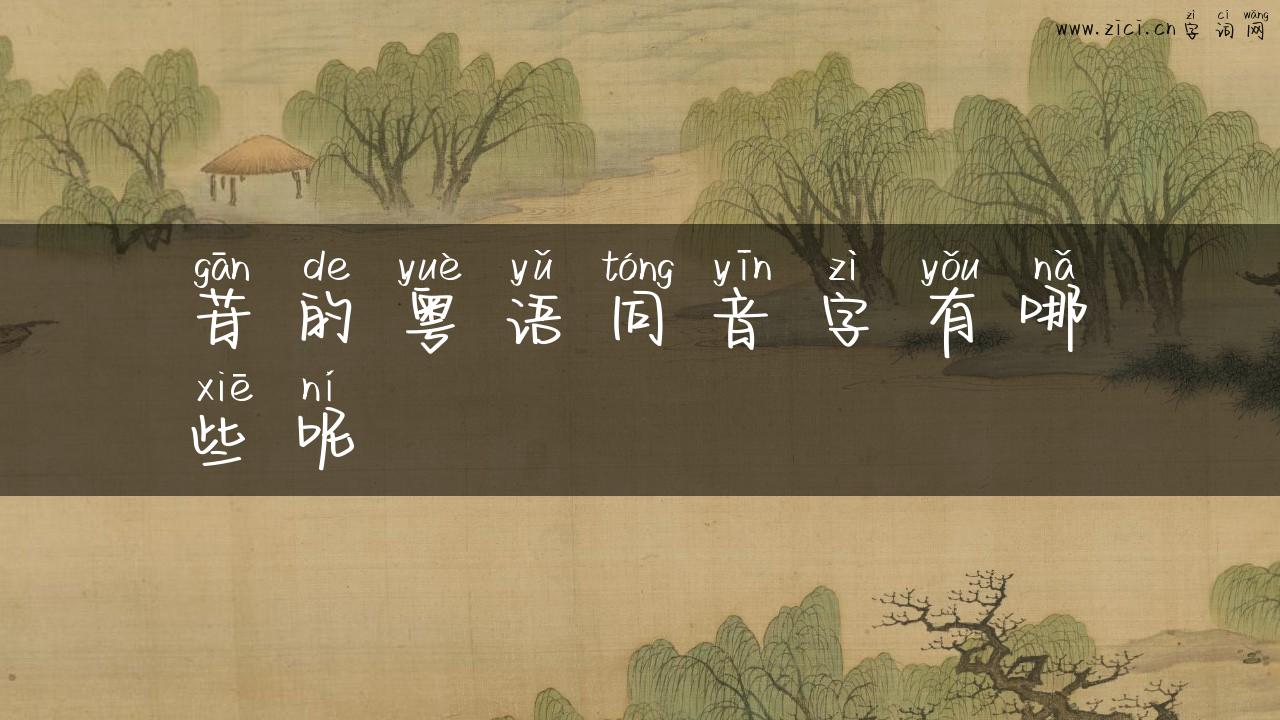 zì cí wǎng
www.zici.cn 字 词 网
gān de yuè yǔ tóng yīn zì yǒu nǎ
苷 的 粤 语 同 音 字 有 哪
xiē ní
些 呢